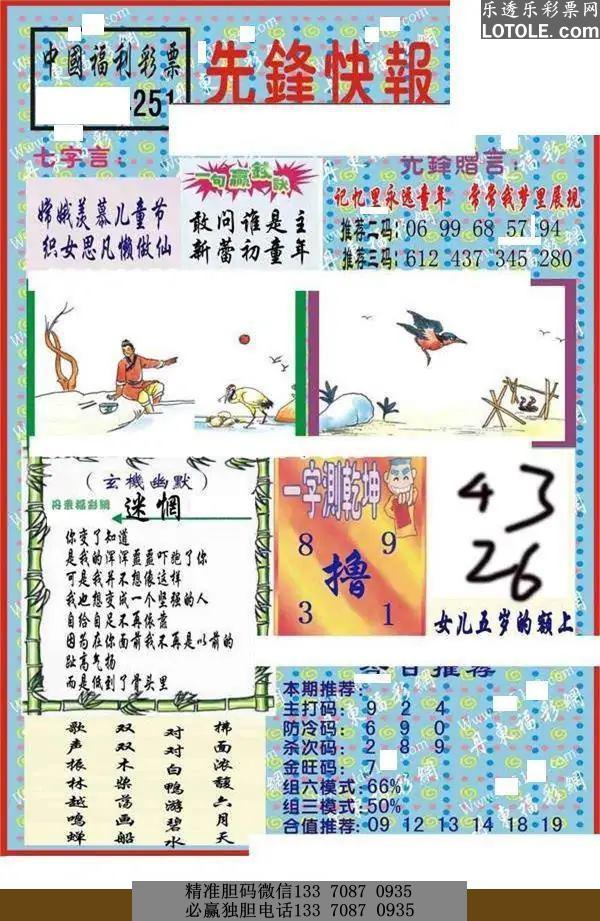 乐透乐彩票网
LOTOLE.COM
中國福利彩票
先鋒快報
251
七字言：
一句赢錢訣
先鋒赠言：
嫦娥羡慕儿童节
织女思凡懒做仙
敢问谁是主
新蕾初童年
记忆里永远童年 常常我梦里展现
推荐二码：06 99 68 57 94
推荐三码：612 437 345 280
（玄機幽默）
丹東福彩網
迷惘
你变了知道
是我的浑浑噩噩吓跑了你
可是我并不想像这样
我也想变成一个坚强的人
自给自足不再依靠
因为在你面前我不再是以前的
趾高气扬
而是低到了骨头里
一字测乾坤
8 9
撸
3 1
43
26
女儿五岁的额上
综合推荐
本期推荐：
主打码：9 2 4
防冷码：6 9 0
杀次码：2 8 9
金旺码：7
组六模式：66%
组三模式：50%
合值推荐：09 12 13 14 18 19
拂面浓馥六月天
对对白鸭游碧水
双双木桨荡画船
歌声振林越鸣蝉
精准胆码微信133 7087 0935
必赢独胆电话133 7087 0935